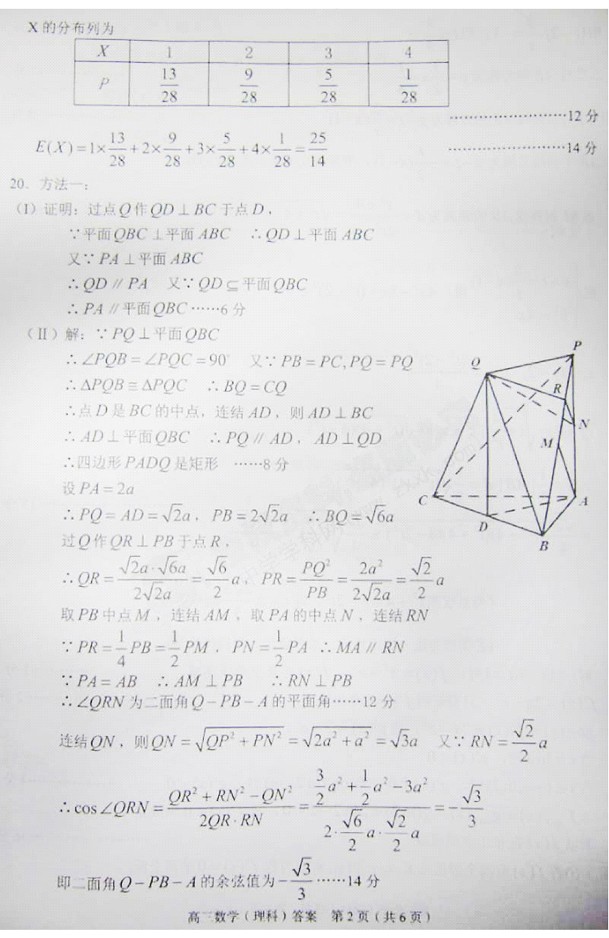 X的分布列为
X 1 2 3 4
P 13/28 9/28 5/28 1/28
……………………12分
E(X)=1×13/28+2×9/28+3×5/28+4×1/28=25/14 ……………………14分
20. 方法一:
(I) 证明: 过点Q作QD⊥BC于点D,
∵平面QBC⊥平面ABC ∴QD⊥平面ABC
又∵PA⊥平面ABC
∴QD∥PA 又∵QD⊆平面QBC
∴PA∥平面QBC……6分
(Ⅱ) 解: ∵PQ⊥平面QBC
∴∠PQB=∠PQC=90° 又∵PB=PC,PQ=PQ
∴ΔPQB≅ΔPQC ∴BQ=CQ
∴点D是BC的中点, 连结AD, 则AD⊥BC
∴AD⊥平面QBC ∴PQ∥AD, AD⊥QD
∴四边形PADQ是矩形 ……8分
设PA=2a
∴PQ=AD=√2a, PB=2√2a ∴BQ=√6a
过Q作QR⊥PB于点R,
∴QR=(√2a·√6a)/(2√2a)=(√6/2)a, PR=PQ²/PB=2a²/(2√2a)=(√2/2)a
取PB中点M, 连结AM, 取PA的中点N, 连结RN
∵PR=1/4PB=1/2PM, PN=1/2PA ∴MA∥RN
∵PA=AB ∴AM⊥PB ∴RN⊥PB
∴∠QRN为二面角Q-PB-A的平面角……12分
连结QN, 则QN=√(QP²+PN²)=√(2a²+a²)=√3a 又∵RN=(√2/2)a
∴cos∠QRN=(QR²+RN²-QN²)/(2QR·RN)=(3/2a²+1/2a²-3a²)/(2·√6/2a·√2/2a)=-√3/3
即二面角Q-PB-A的余弦值为-√3/3……14分
P
Q
R
N
M
C
A
D
B
高三数学(理科)答案 第2页(共6页)